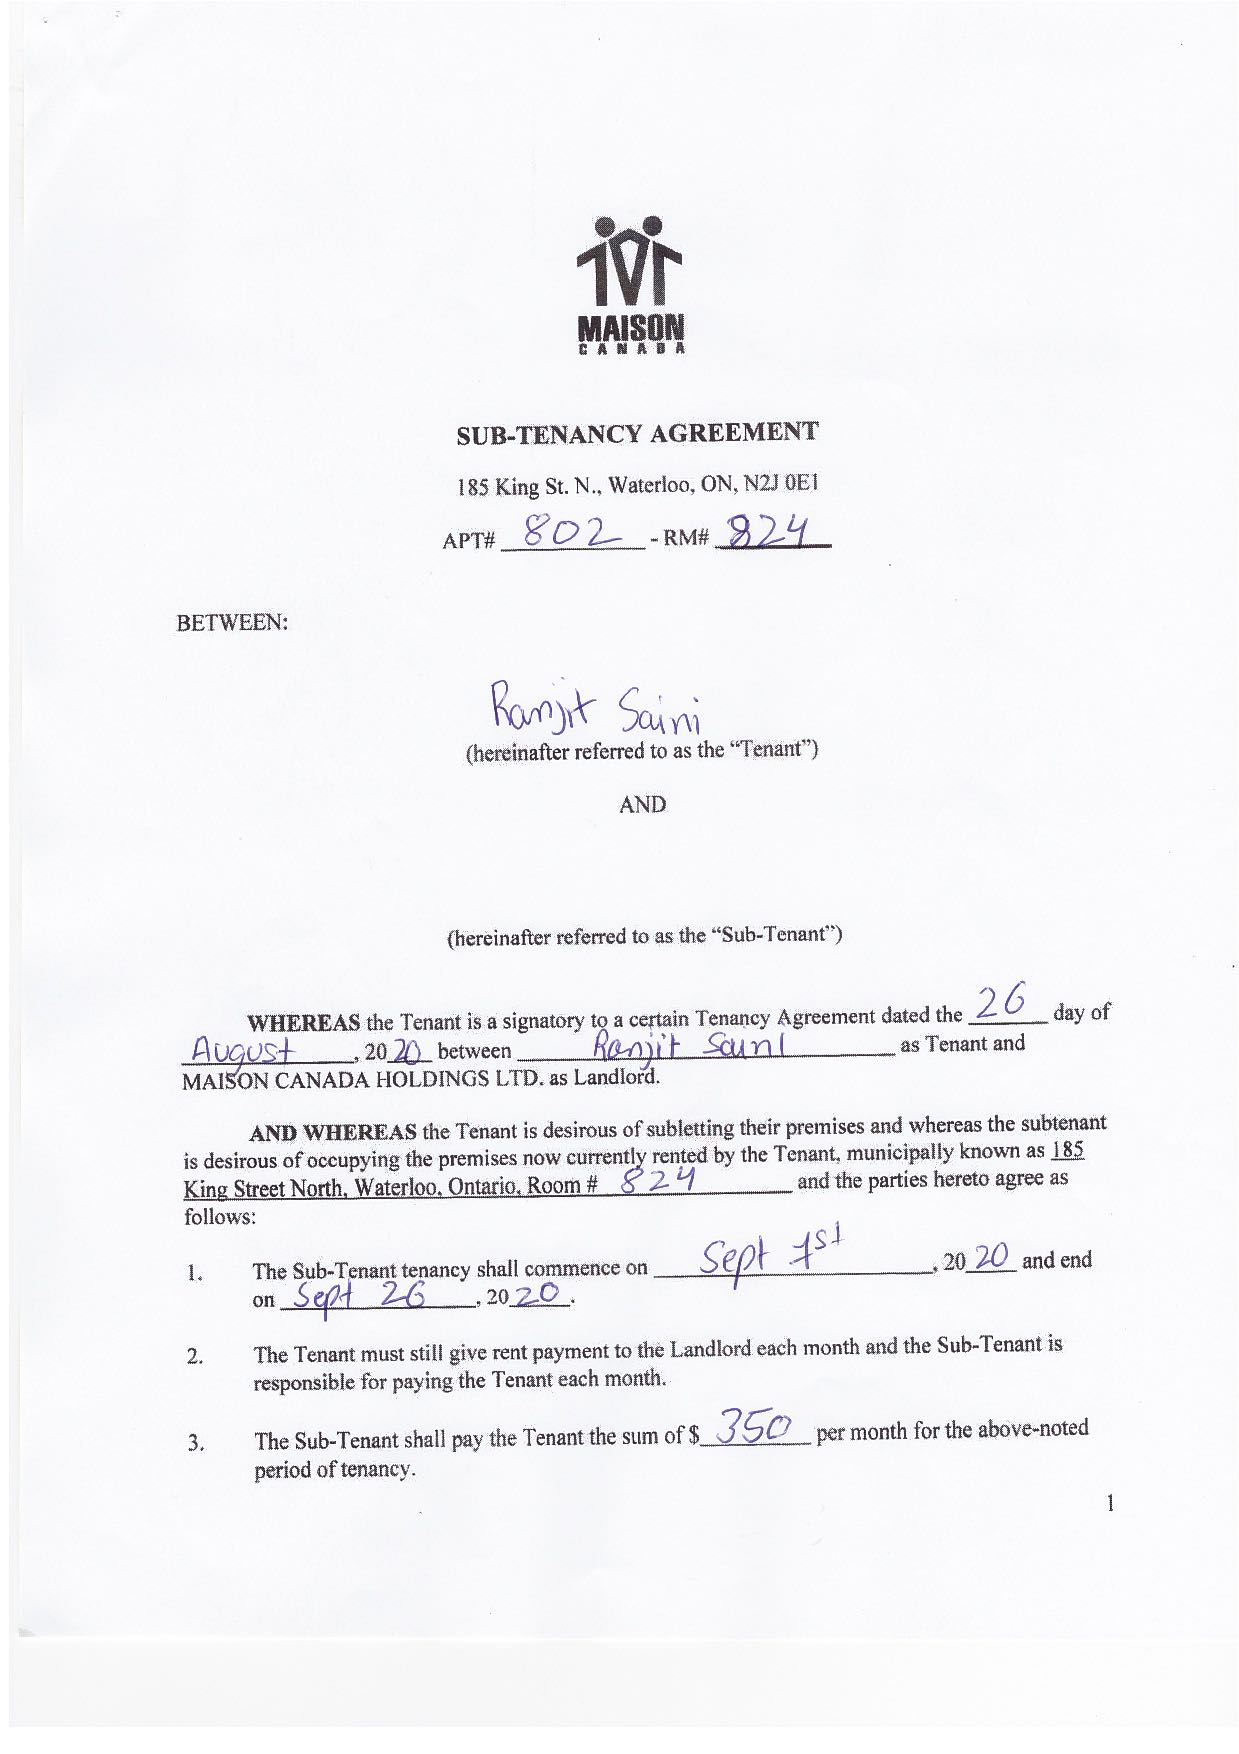 MAISON
CANADA
SUB-TENANCY AGREEMENT
185 King St. N., Waterloo, ON, N2J 0E1
APT# 802 - RM# 824
BETWEEN:
Ranjit Saini
(hereinafter referred to as the “Tenant”)
AND
(hereinafter referred to as the “Sub-Tenant”)
WHEREAS the Tenant is a signatory to a certain Tenancy Agreement dated the 26 day of
August, 2020 between Ranjit Saini as Tenant and
MAISON CANADA HOLDINGS LTD. as Landlord.
AND WHEREAS the Tenant is desirous of subletting their premises and whereas the subtenant
is desirous of occupying the premises now currently rented by the Tenant, municipally known as 185
King Street North, Waterloo, Ontario, Room # 824 and the parties hereto agree as
follows:
1. The Sub-Tenant tenancy shall commence on Sept 1st, 2020 and end
on Sept 26, 2020.
2. The Tenant must still give rent payment to the Landlord each month and the Sub-Tenant is
responsible for paying the Tenant each month.
3. The Sub-Tenant shall pay the Tenant the sum of $ 350 per month for the above-noted
period of tenancy.
1